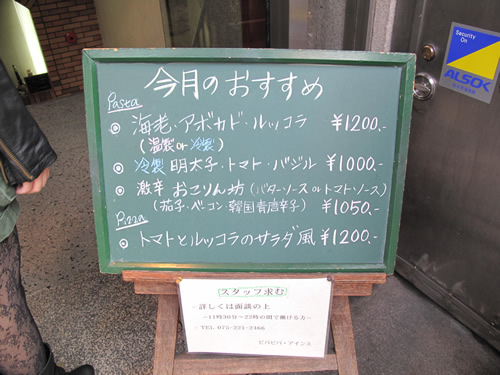 今月のおすすめ
Pasta
◎ 海老・アボカド・ルッコラ ¥1200.-
(温製 or 冷製)
◎ 冷製 明太子・トマト・バジル ¥1000.-
◎ 激辛 おこりん坊 (バターソース or トマト・ソース)
(茄子・ベーコン・韓国青唐辛子) ¥1050.-
Pizza
◎ トマトとルッコラのサラダ風 ¥1200.-
スタッフ求む
詳しくは面談の上
~11時30分~22時の間で働ける方~
TEL 075-221-2466
ビバビバ・アインス
Security
On
ALSOK